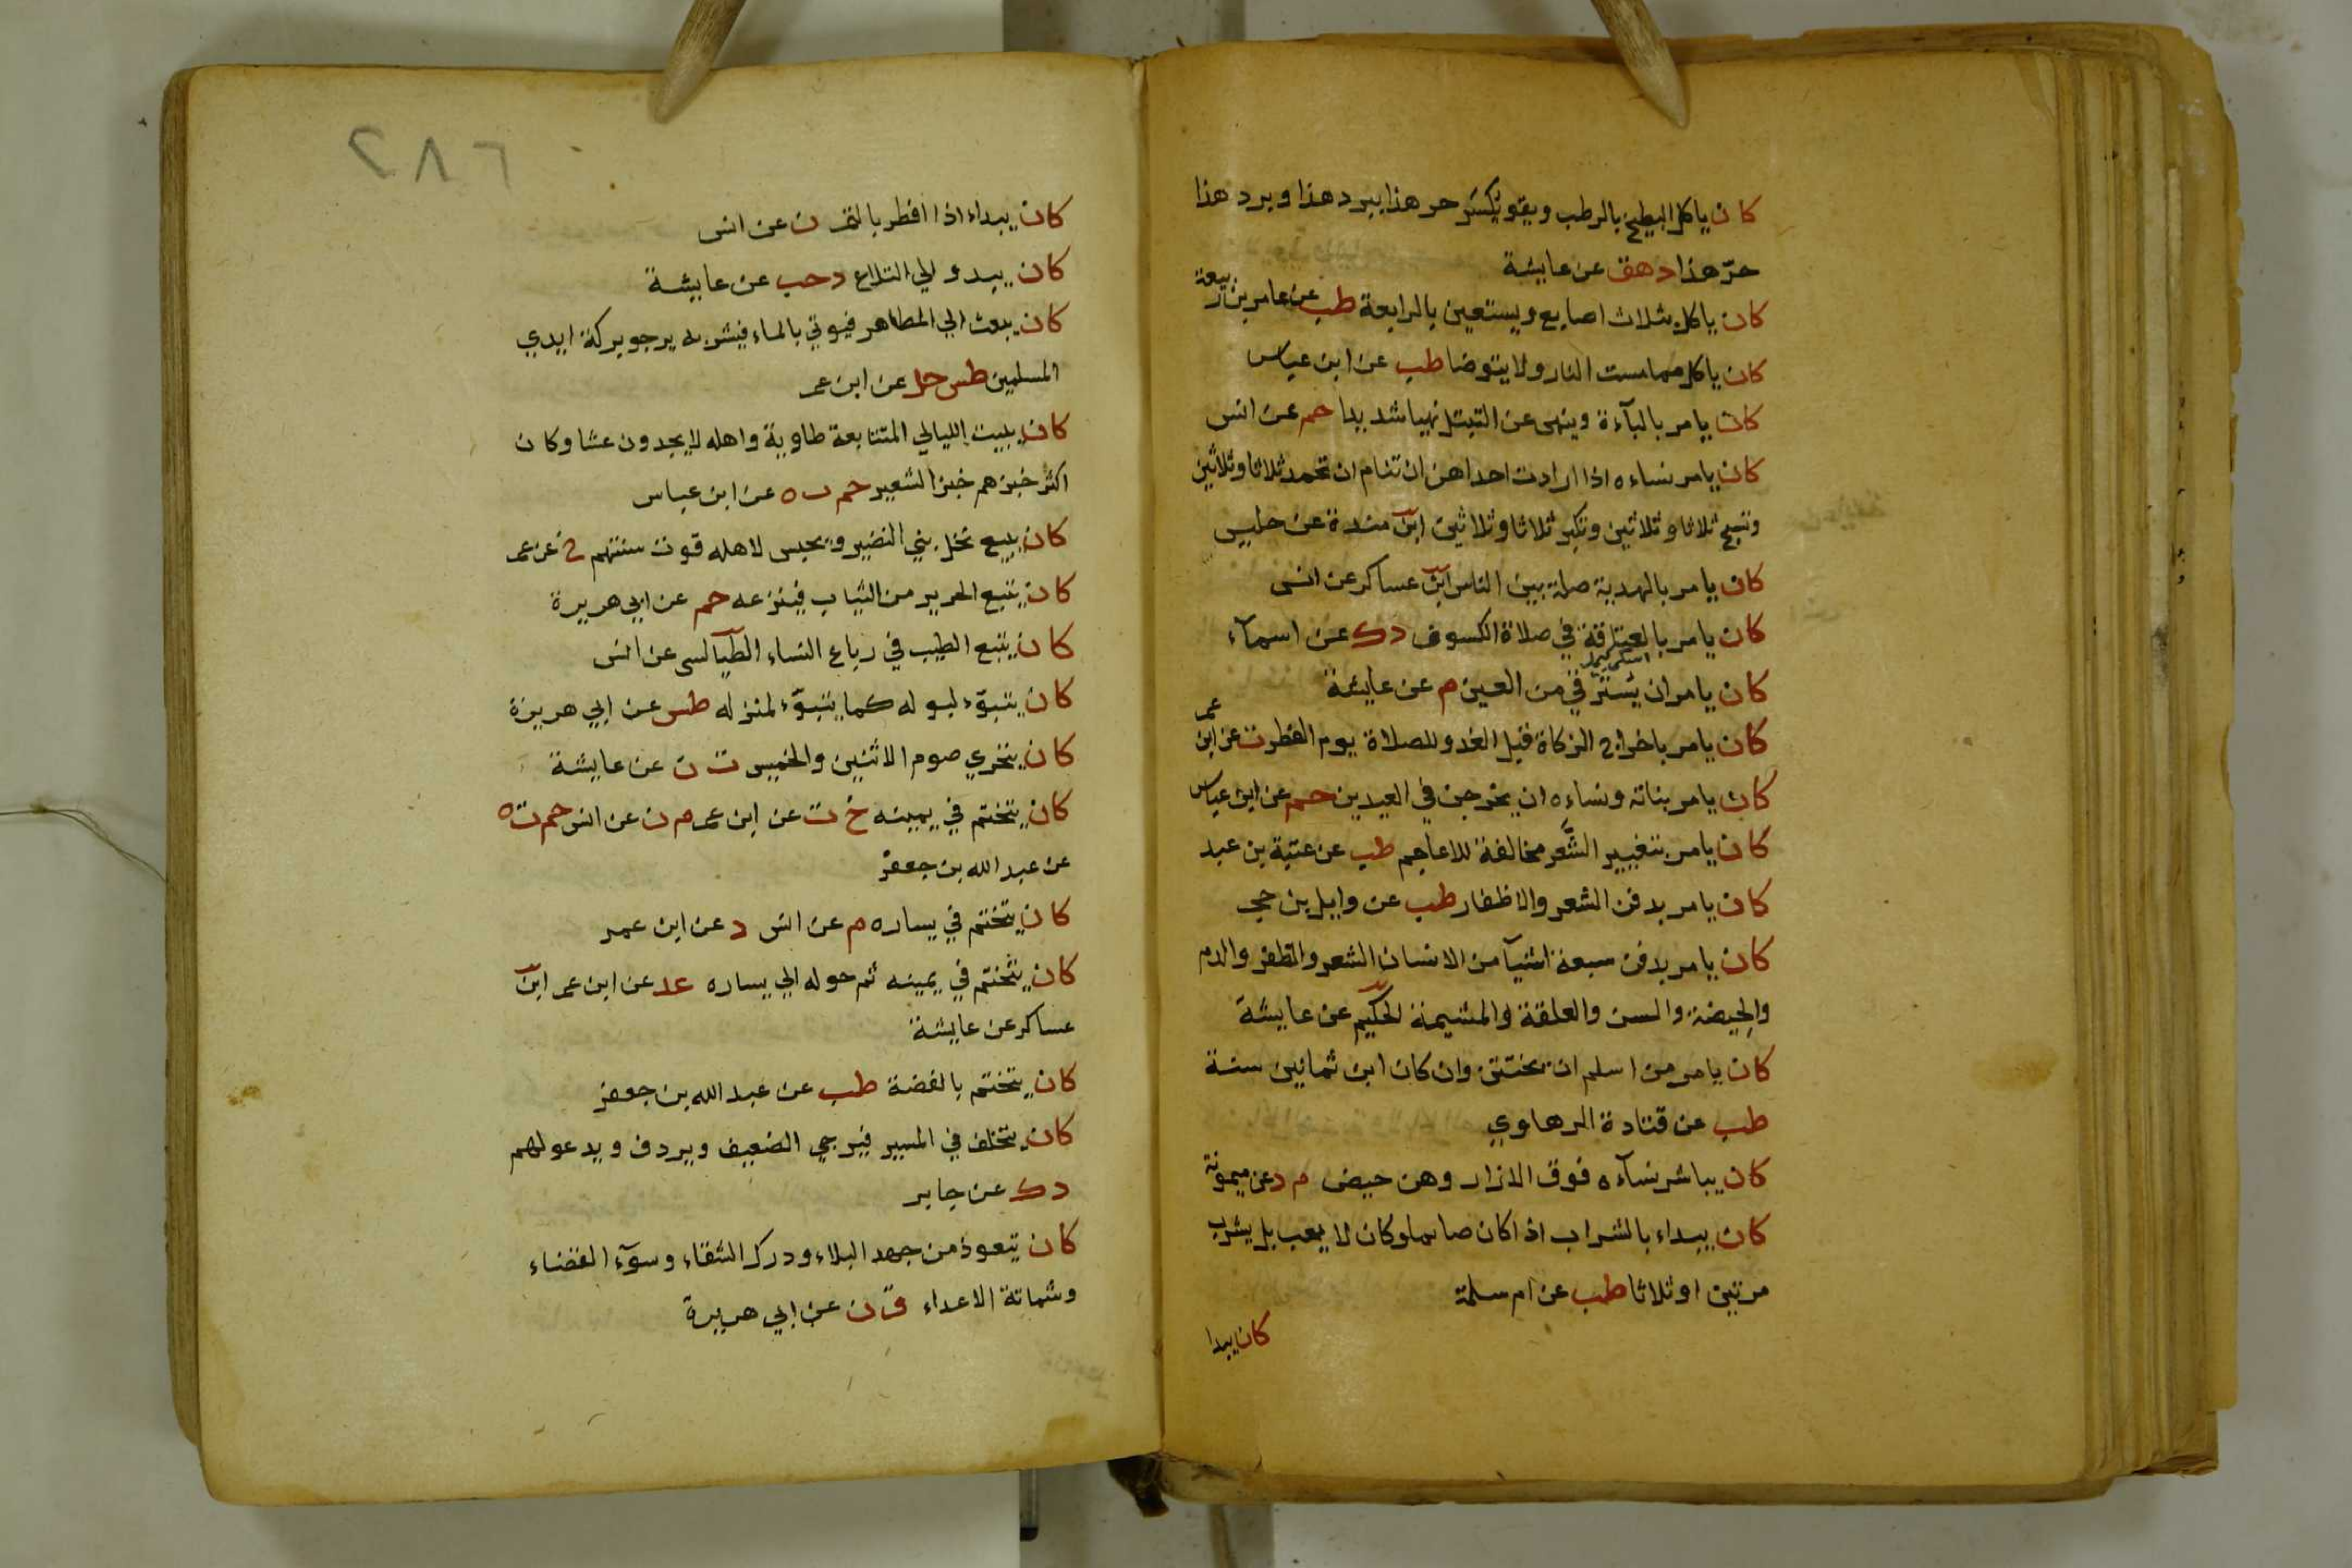 كان ياكل البطيخ بالرطب ويقو يكسر حر هذا ببرد هذا وبرد هذا
حرّ هذا د هق عن عايشة
كان ياكل بثلاث اصابع ويستعين بالرابعة طب عن عامر بن ربيعة
كان ياكل مما مست النار ولا يتوضا طب عن ابن عباس
كان يامر بالبآءة وينهى عن التبتل نهيا شديدا حم عن انس
كان يامر نساءه اذا ارادت احداهن ان تنام ان تحمد ثلاثا وثلاثين
وتسبح ثلاثا وثلاثين وتكبر ثلاثا وثلاثين ابن مندة عن حلبس
كان يامر بالهدية صلة بين الناس ابن عساكر عن انس
كان يامر بالعتاقة في صلاة الكسوف د ك عن اسمآء
كان يامر ان يسترقي من العين م عن عايشة
كان يامر باخراج الزكاة قبل الغدو للصلاة يوم الفطر ت عن ابن عمر
كان يامر بناته ونساءه ان يخرجن في العيدين حم عن ابن عباس
كان يامر بتغيير الشَّعر مخالفة للاعاجم طب عن عتبة بن عبد
كان يامر بدفن الشعر والاظفار طب عن وايل بن حجر
كان يامر بدفن سبعة اشيآ من الانسان الشعر والظفر والدم
والحيضة والسن والعلقة والمشيمة الحكيم عن عايشة
كان يامر من اسلم ان يختتن وان كان ابن ثمانين سنة
طب عن قتادة الرهاوي
كان يباشر نسآءه فوق الازار وهن حيض م د عن ميمونة
كان يبداء بالشراب اذا كان صايما وكان لا يعب بل يشرب
مرتين او ثلاثا طب عن ام سلمة
كان يبدا
٢٨٦
كان يبداء اذا افطر بالتمر ن عن انس
كان يبدو الي التلاع د حب عن عايشة
كان يبعث الي المطاهر فيوتي بالماء فيشربه يرجو بركة ايدي
المسلمين طس حل عن ابن عمر
كان يبيت الليالي المتتابعة طاوية واهله لا يجدون عشا وكان
اكثر خبزهم خبز الشعير حم ت ه عن ابن عباس
كان يبيع نخل بني النضير ويحبس لاهله قوت سنتهم خ عن عمر
كان يتبع الحرير من الثياب فينزعه حم عن ابي هريرة
كان يتبع الطيب في رباع النساء الطيالسي عن انس
كان يتبوّء لبوله كما يتبوّء لمنزله طس عن ابي هريرة
كان يتحري صوم الاثنين والخميس ت ن عن عايشة
كان يتختم في يمينه خ ت عن ابن عمر م ن عن انس حم ت ه
عن عبد الله بن جعفر
كان يتختم في يساره م عن انس د عن ابن عمر
كان يتختم في يمينه ثم حوله الي يساره عد عن ابن عمر ابن
عساكر عن عايشة
كان يتختم بالفضة طب عن عبد الله بن جعفر
كان يتخلف في المسير فيزجي الضعيف ويردف ويدعو لهم
د ك عن جابر
كان يتعوذ من جهد البلاء ودرك الشقاء وسوّء القضاء
وشماتة الاعداء ق ن عن ابي هريرة